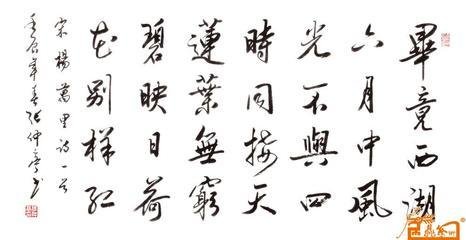 畢竟西湖
六月中風
光不與四
時同接天
蓮葉無窮
碧映日荷
花別樣紅
宋楊萬里詩一首
壬辰年春张仲亭书